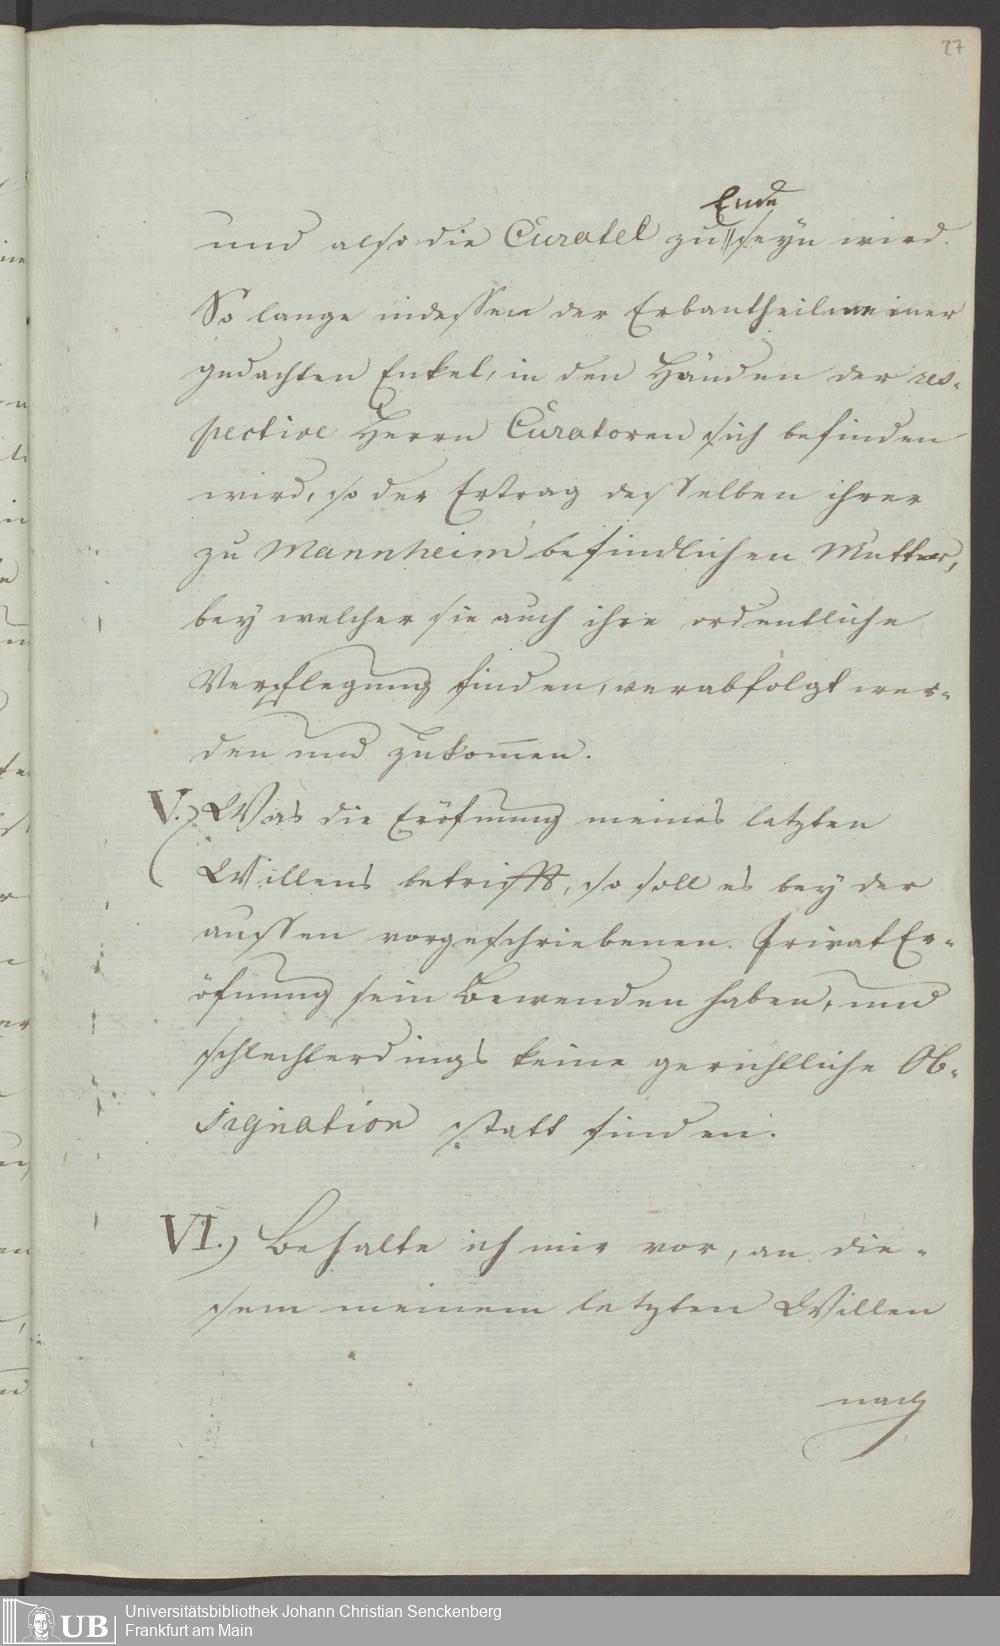 27
Ende
und also die Curatel zu || seyn wird.
So lange indessen der Erbantheil meiner
gedachten Enkel, in den Händen der res-
pective Herrn Curatoren sich befinden
wird, so der Ertrag desselben ihrer
zu Mannheim befindlichen Mutter,
bey welcher sie auch ihre ordentliche
Verpflegung finden, verabfolgt wer-
den und zukom̅en.
V.) Was die Eröfnung meines letzten
Willens betrifft, so soll es bey der
aussen vorgeschriebenen Privat Er-
öfnung sein Bewenden haben, und
schlechterdings keine gerichtliche Ob-
signation statt finden.
VI.) Behalte ich mir vor, an die-
sem meinem letzten Willen
nach
UB
Universitätsbibliothek Johann Christian Senckenberg
Frankfurt am Main